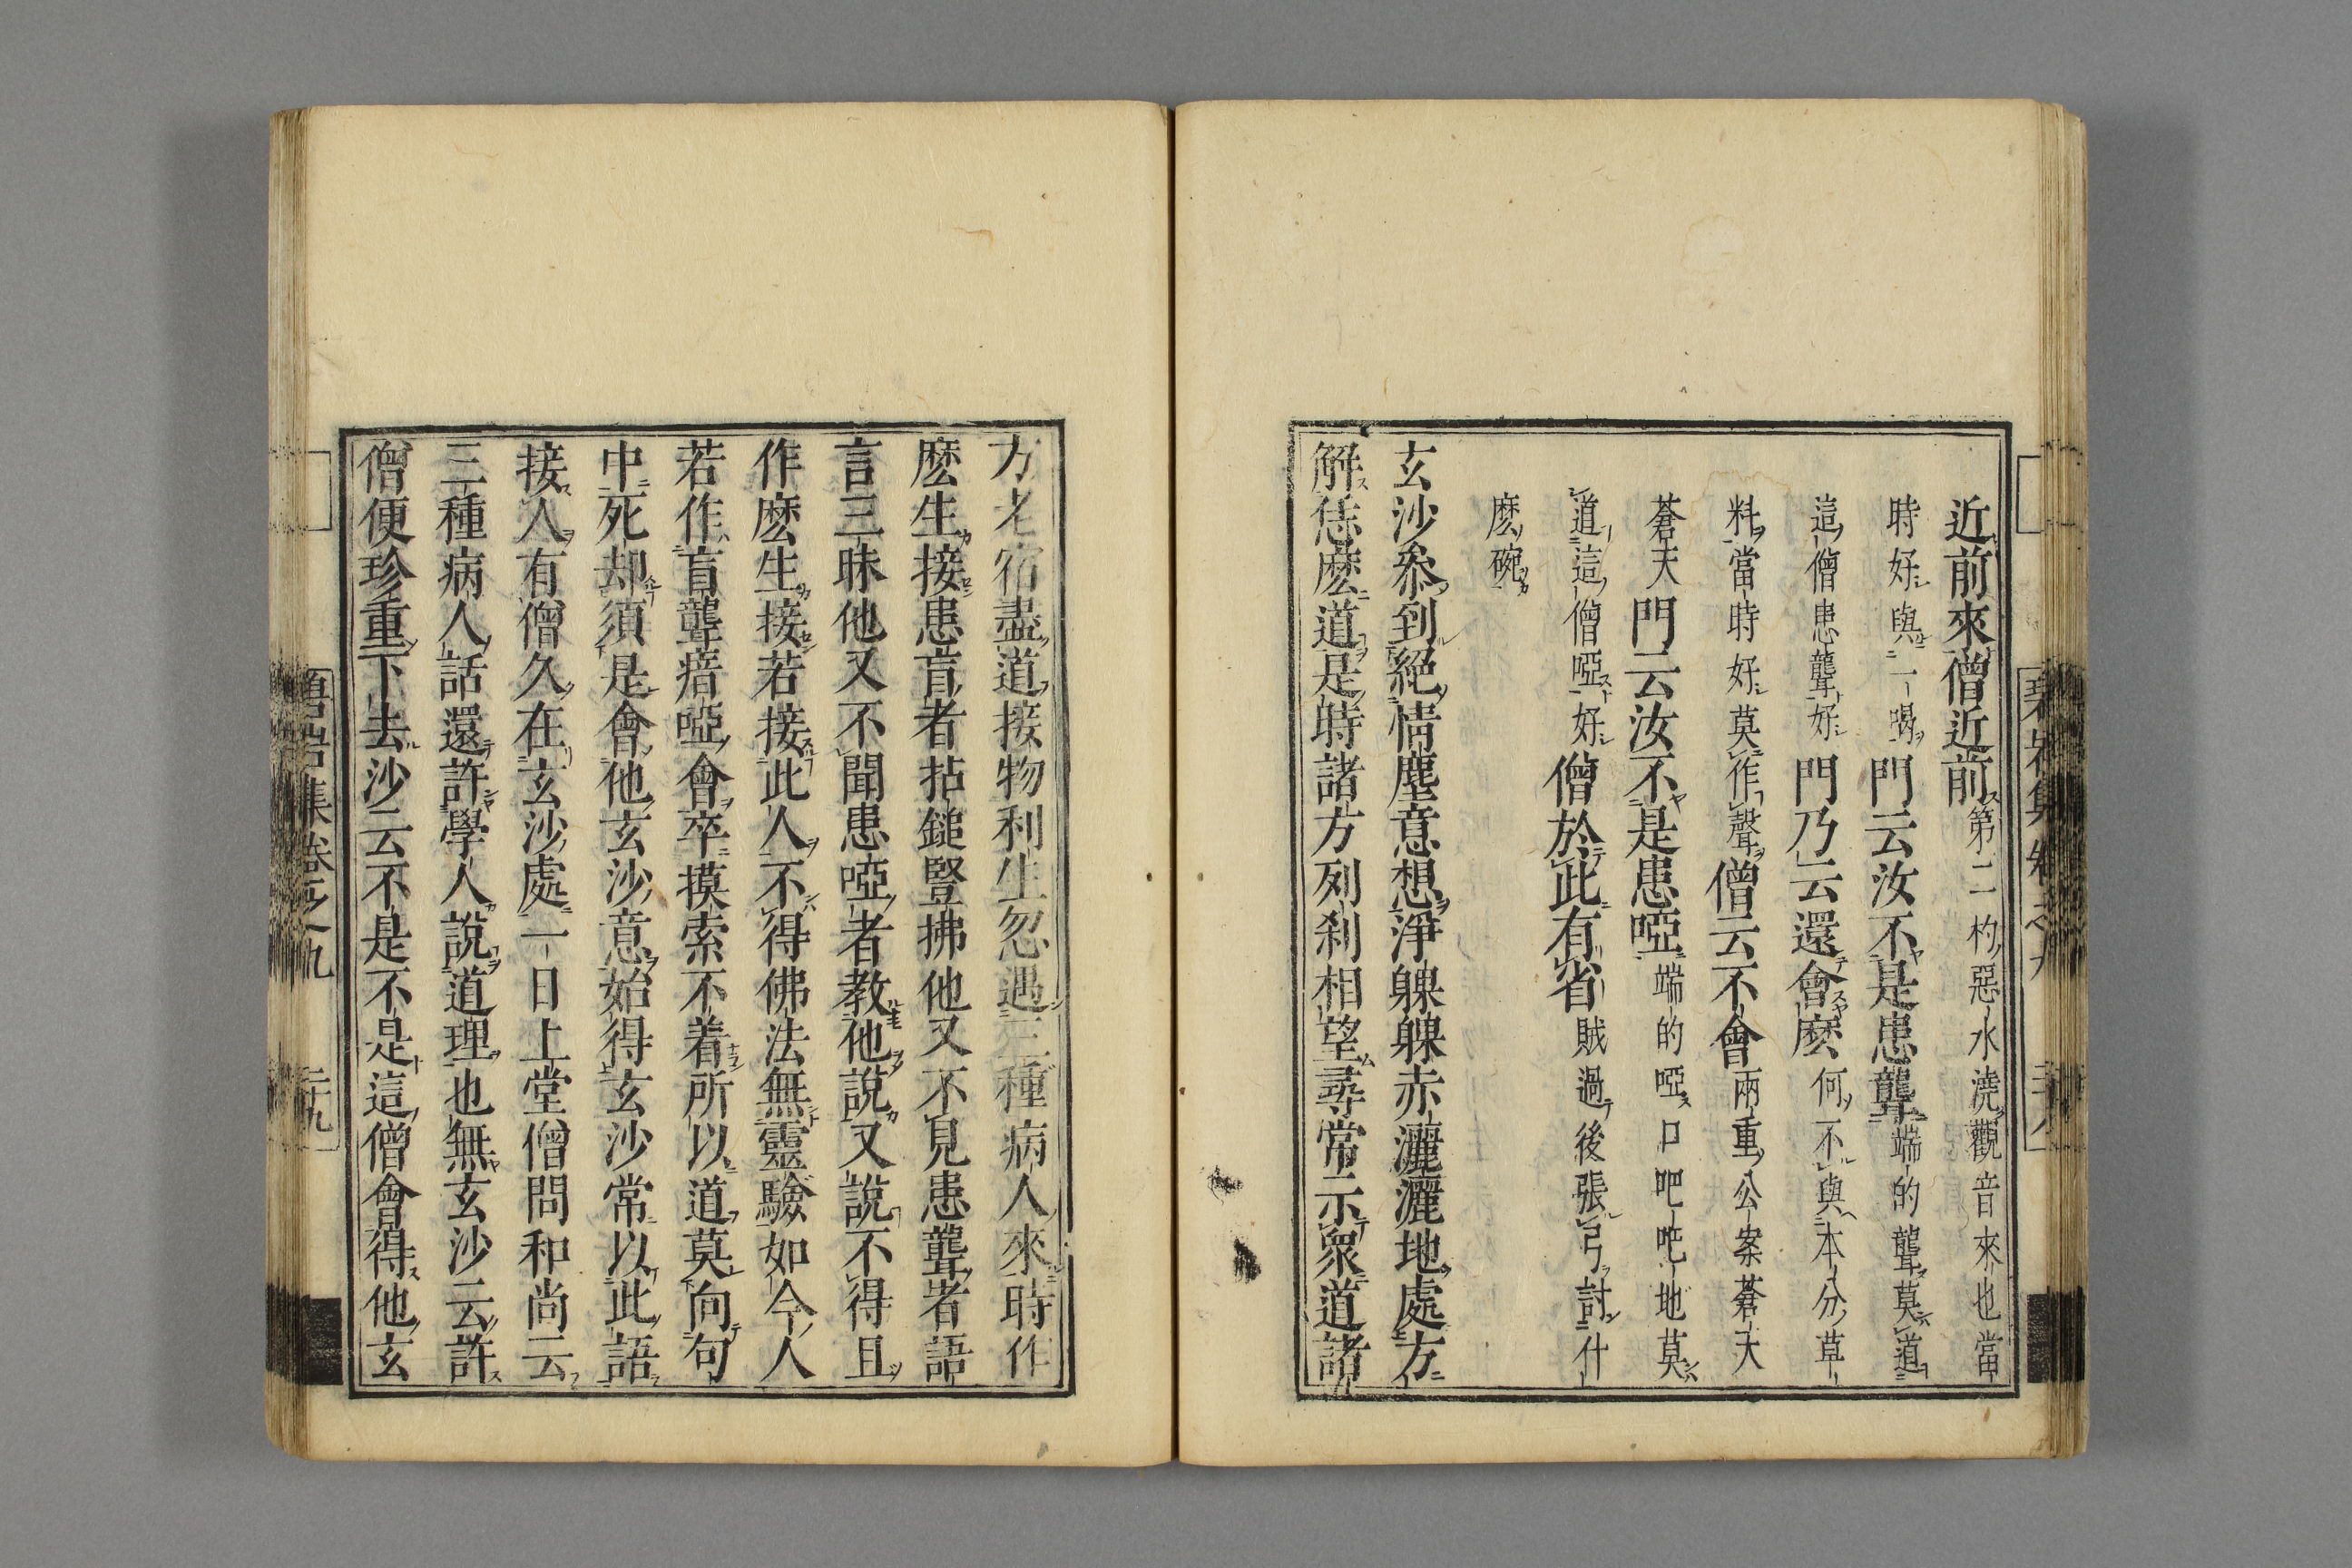 近前來僧近前第二杓惡水澆觀音來也當
時好與一喝門云汝不是患聾端的聾莫道
這僧患聾好門乃云還會麽何不與本分草
料當時好莫作聲僧云不會兩重公案蒼天
蒼天門云汝不是患啞端的啞口吧吧地莫
道這僧啞好僧於此有省賊過後張弓討什
麽碗
玄沙叅到絕情塵意想淨躶躶赤灑灑地處方
解恁麽道是時諸方列刹相望尋常示衆道諸
方老宿盡道接物利生忽遇三種病人來時作
麽生接患盲者拈鎚豎拂他又不見患聾者語
言三昧他又不聞患啞者教他說又說不得且
作麽生接若接此人不得佛法無靈驗如今人
若作盲聾瘖啞會卒摸索不着所以道莫向句
中死却須是會他玄沙意始得玄沙常以此語
接人有僧久在玄沙處一日上堂僧問和尚云
三種病人話還許學人說道理也無玄沙云許
僧便珍重下去沙云不是不是這僧會得他玄
碧岩集卷之九
碧岩集卷之九 二十九